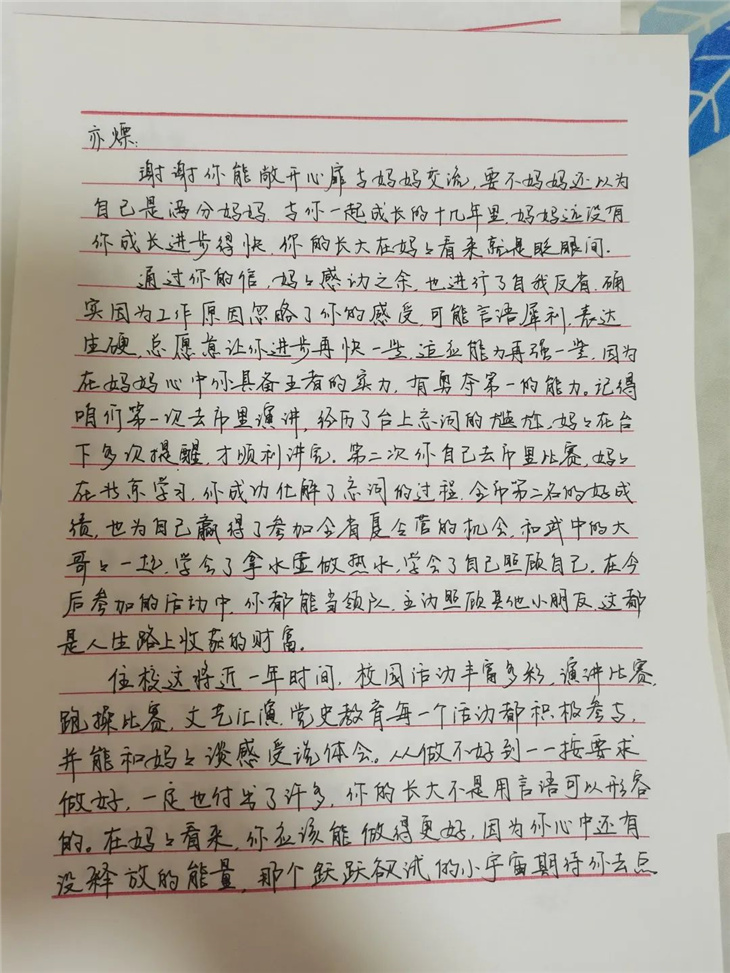 亦燦：
谢谢你能敞开心扉与妈妈交流，要不妈妈还以为
自己是满分妈妈，与你一起成长的十几年里，妈妈远没有
你成长进步得快，你的长大在妈々看来就是眨眼间．
通过你的信，妈々感动之余，也进行了自我反省，确
实因为工作原因忽略了你的感受，可能言语犀利，表达
生硬，总愿意让你进步再快一些，适应能力再强一些，因为
在妈妈心中你具备王者的实力，有勇夺第一的能力。记得
咱们第一次去市里演讲，经历了台上忘词的尴尬，妈々在台
下多次提醒，才顺利讲完．第二次你自己去市里比赛，妈々
在北京学习，你成功化解了忘词的过程，全市第二名的好成
绩，也为自己赢得了参加全省夏令营的机会，和武中的大
哥々一起，学会了拿水壶做热水，学会了自己照顾自己，在今
后参加的活动中，你都能当领队，主动照顾其他小朋友，这都
是人生路上收获的财富．
住校这将近一年时间，校园活动丰富多彩，演讲比赛，
跑操比赛，文艺汇演，党史教育每一个活动都积极参与，
并能和妈々谈感受说体会。从做不好到一一按要求
做好，一定也付出了许多，你的长大不是用言语可以形容
的。在妈々看来，你应该能做得更好，因为你心中还有
没释放的能量，那个跃跃欲试的小宇宙期待你去点